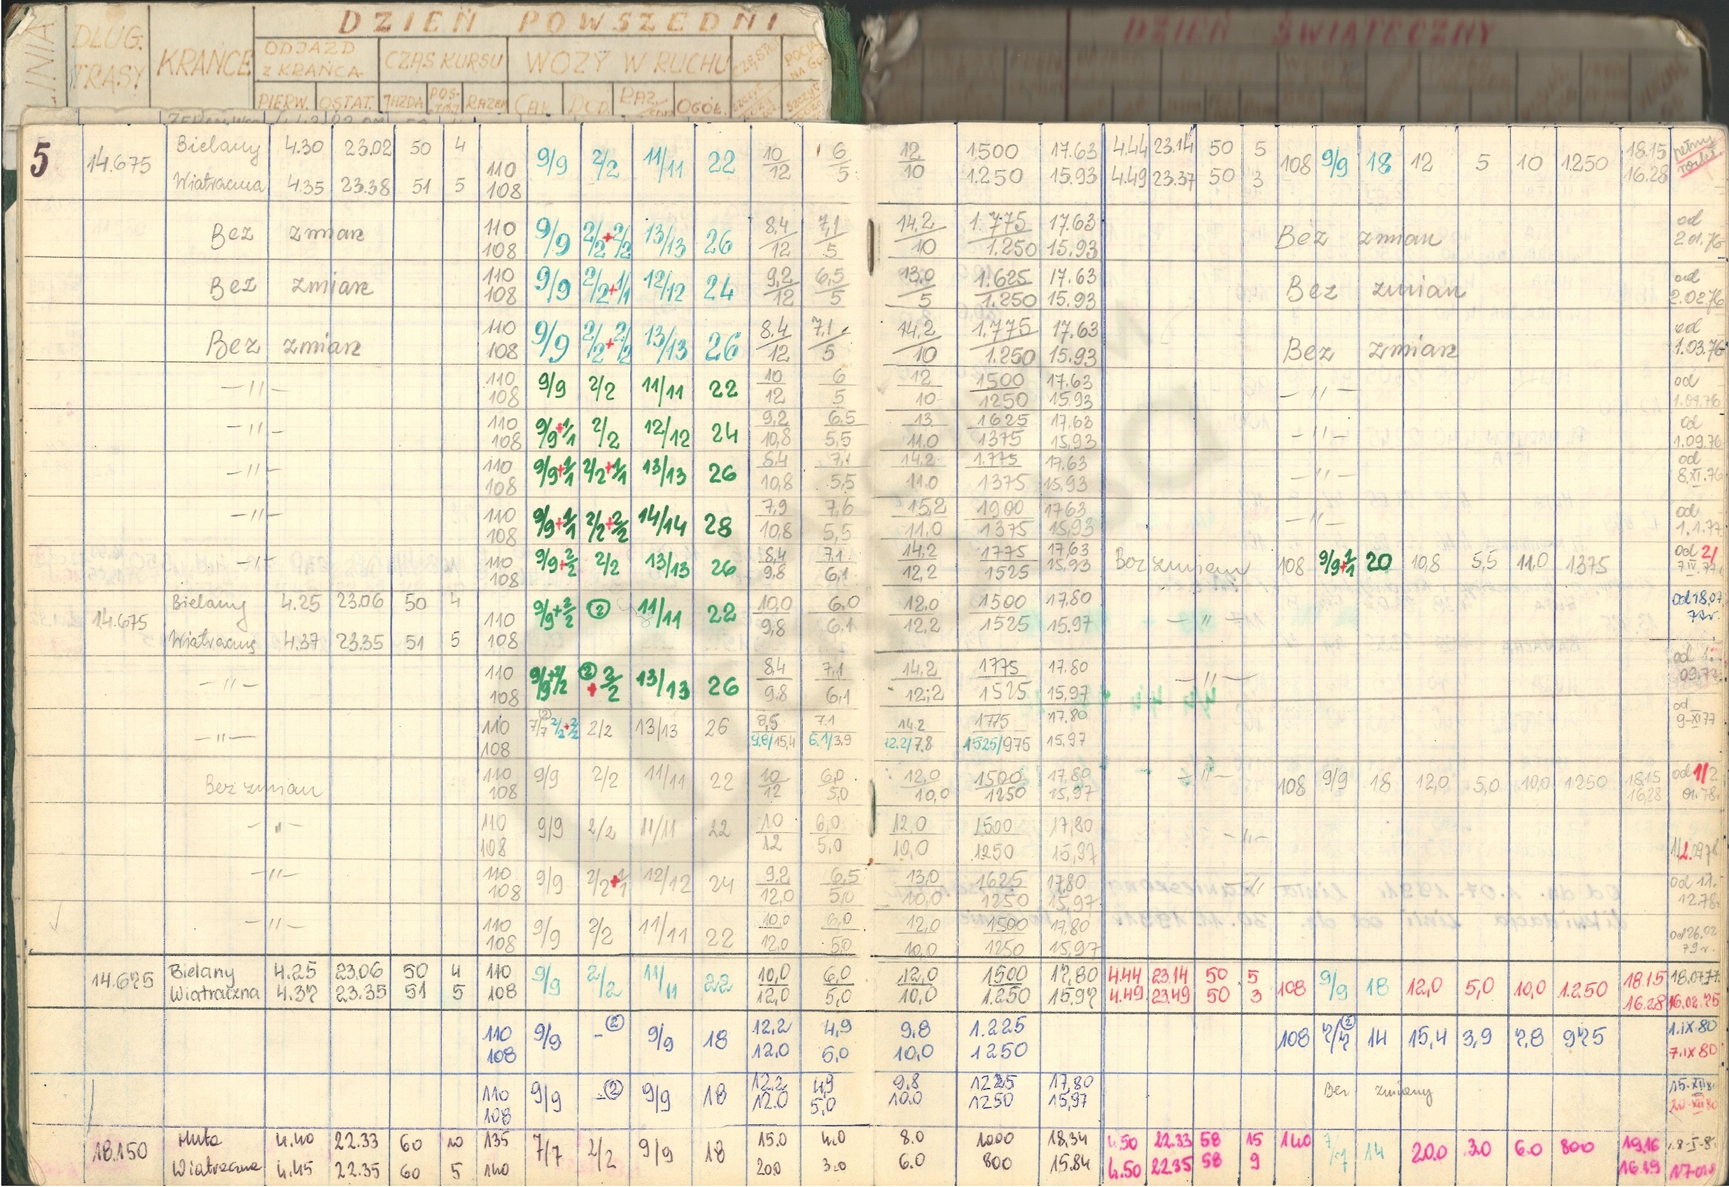 DZIEŃ POWSZEDNI
DZIEŃ ŚWIĄTECZNY
LINIA DŁUG. TRASY KRAŃCE ODJAZD z KRAŃCA CZAS KURSU WOZY W RUCHU
PIERW. OSTAT. JAZDA POSTÓJ RAZEM CAŁ. DOD. RAZ. OGÓŁ.
5 14.675 Bielany 4.30 23.02 50 4 110 9/9 2/2 11/11 22 10 6 12 1500 17.63 4.44 23.14 50 5 108 9/9 18 12 5 10 1250 18.15
Wiatraczna 4.35 23.38 51 5 108 12 5 10 1.250 15.93 4.49 23.37 50 3 16.28
Bez zmian 110 9/9 2/2+2/2 13/13 26 8.4 7,1 14.2 1.775 17.63 Bez zmian od
108 12 5 10 1.250 15.93 2.01.76
Bez zmian 110 9/9 2/2+1/1 12/12 24 9,2 6,5 13,0 1.625 17.63 Bez zmian od
108 12 5 5 1.250 15.93 2.02.76
Bez zmian 110 9/9 2/2+2/2 13/13 26 8.4 7.1 14.2 1.775 17.63 Bez zmian od
108 12 5 10 1.250 15.93 1.03.76
—"— 110 9/9 2/2 11/11 22 10 6 12 1500 17.63 —"— od
108 12 5 10 1250 15.93
—"— 110 9/9+1/1 2/2 12/12 24 9,2 6.5 13 1625 17.63 —"— od
108 10,8 5,5 11.0 1375 15.93 1.09.76
—"— 110 9/9+1/1 2/2+1/1 13/13 26 8.4 7,1 14.2 1.775 17.63 —"— od
108 10,8 5,5 11.0 1375 15.93 8.XI.76
—"— 110 9/9+1/1 2/2+2/2 14/14 28 7,9 7,6 15,2 1900 17.63 —"— od
108 10,8 5,5 11.0 1375 15.93 1.1.77
—"— 110 9/9+2/2 2/2 13/13 26 8,4 7.1 14.2 1775 17,63 Bez zmian 108 9/9+1/1 20 10,8 5,5 11.0 1375 od 2/
108 9,8 6,1 12,2 1525 15.93
14.675 Bielany 4.25 23.06 50 4 110 9/9+2/2 (2) 11/11 22 10,0 6.0 12,0 1500 17.80 —"— od 18.07
Wiatraczna 4.37 23.35 51 5 108 9,8 6,1 12,2 1525 15.97 77r.
—"— 110 9/9+2/2 (2)+2/2 13/13 26 8,4 7,1 14.2 1775 17.80 —"—
108 9,8 6,1 12,2 1525 15,97
—"— 110 7/7 (2) 2/2+2/2 2/2 13/13 26 8,5 7.1 14.2 1775 17,80 od
108 9.8/15,4 6.1/3,9 12.2/7,8 1525/975 15,97 9-XI77
Bez zmian 110 9/9 2/2 11/11 22 10 6,0 12,0 1500 17,80 —"— 108 9/9 18 12,0 5,0 10,0 1250 18.15 od 1/2
108 12 5,0 10,0 1250 15,97 16,28 01.78.
—"— 110 9/9 2/2 11/11 22 10 6,0 12,0 1,500 17,80 —"—
108 12 5,0 10,0 1250 15,97
—"— 110 9/9 2/2+1/1 12/12 24 9,2 6,5 13,0 1625 17,80 —"—
108 12,0 5,0 10,0 1250 15,97 12.78.
—"— 110 9/9 2/2 11/11 22 10.0 6.0 12,0 1500 17,80 od 26.02
108 12,0 5,0 10,0 1250 15,97 79 r.
14.675 Bielany 4.25 23.06 50 4 110 9/9 2/2 11/11 22 10,0 6,0 12,0 1500 17,80 4.44 23.14 50 5 108 9/9 18 12,0 5,0 10,0 1.250 18.15 18.07.77.
Wiatraczna 4.37 23.35 51 5 108 12,0 5,0 10,0 1.250 15,97 4.49 23.49 50 3 16.28 16.02.75
110 9/9 -(2) 9/9 18 12,2 4,9 9,8 1.225 108 7/7 (2) 14 15,4 3,9 7,8 975 1.IX 80
108 12,0 5,0 10,0 1250 7.IX 80
110 9/9 -(2) 9/9 18 12,2 4,9 9.8 1225 17,80 Bez zmiany
108 12.0 5,0 10.0 1250 15,97
18.150 Huta 4.40 22.33 60 10 135 7/7 2/2 9/9 18 15.0 4.0 8.0 1000 18,34 4.50 22.33 58 15 140 7/7 14 20.0 3.0 6.0 800 19.16
Wiatraczna 4.45 22.35 60 5 140 20.0 3.0 6.0 800 15.84 4.50 22.35 58 9 16.19